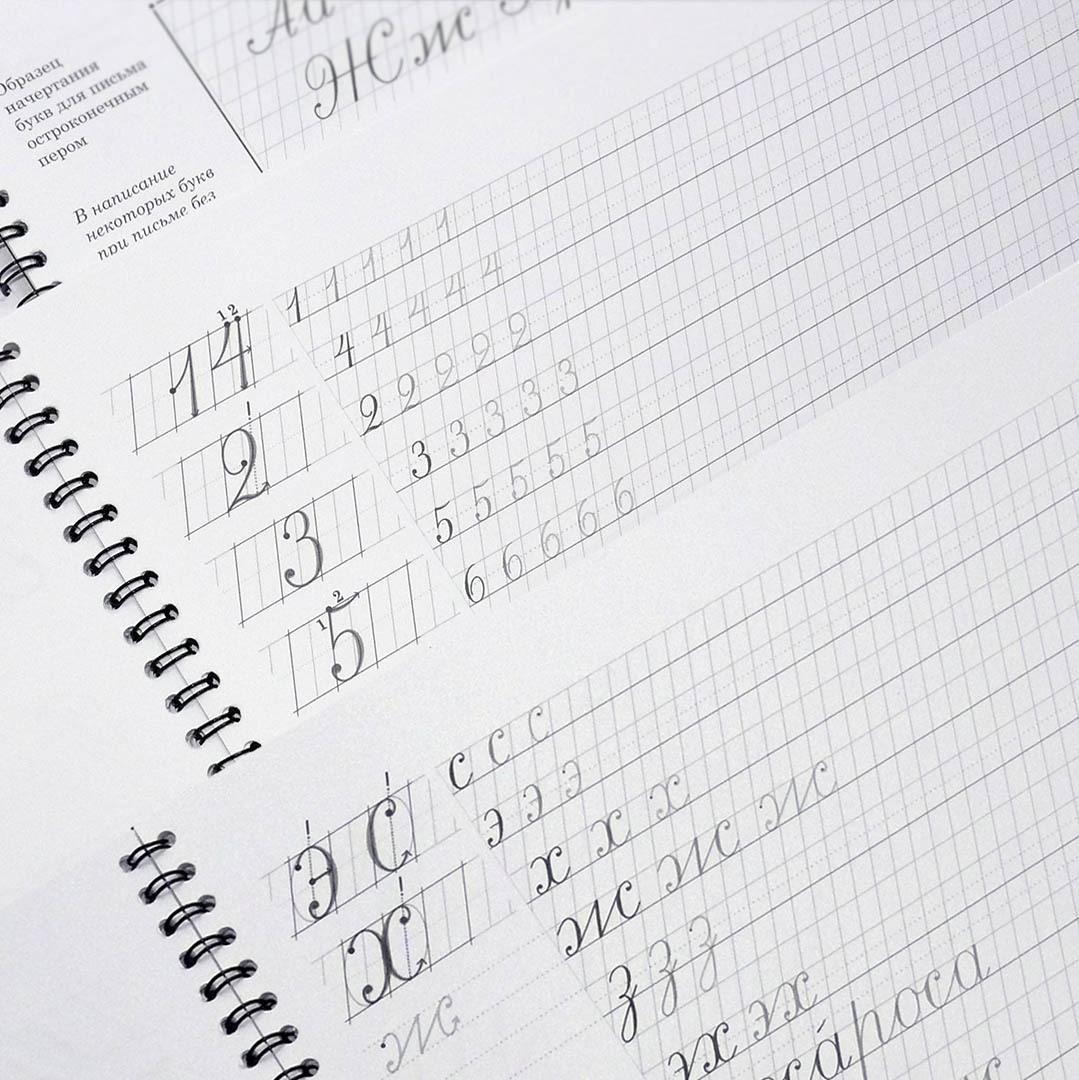 Образец
начертания
букв для письма
остроконечным
пером
В написание
некоторых букв
при письме без
Аа
Жж
1 2
14
1 1 1 1 1
4 4 4 4 4
2
2 2 2 2 2
3
3 3 3 3 3
1 2
5
5 5 5 5 5
6 6 6 6 6
э с
с с с
э э э
х
х х х
ж
ж ж ж
з з з
ух эх
роса